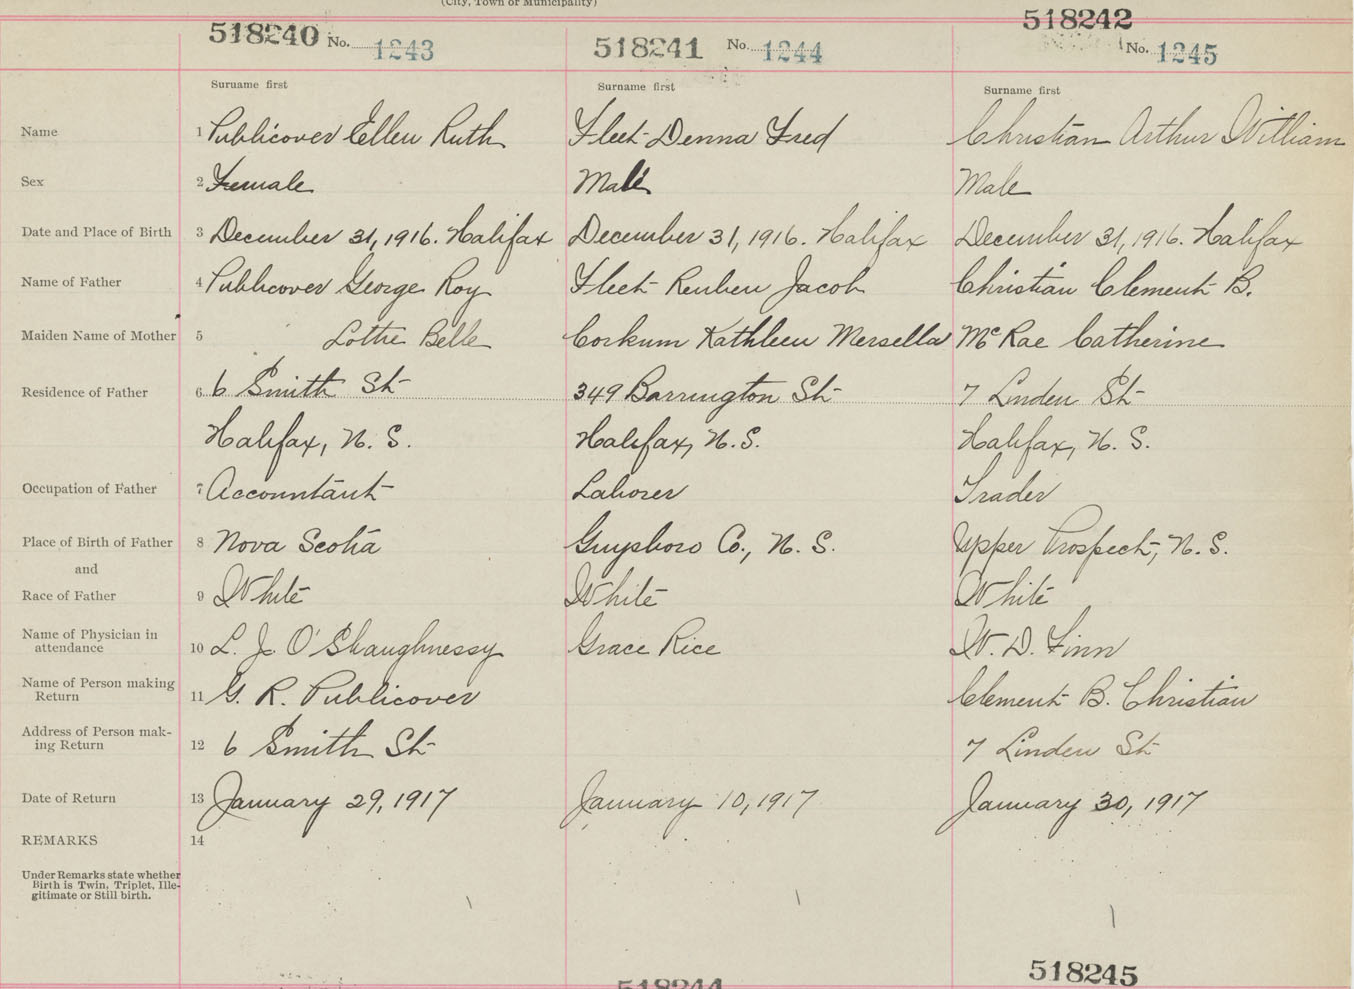 (City, Town or Municipality)
518240 No. 1243 518241 No. 1244 518242 No. 1245
Surname first Surname first Surname first
Name 1 Publicover Ellen Ruth Fleet Denna Fred Christian Arthur William
Sex 2 Female Male Male
Date and Place of Birth 3 December 31, 1916. Halifax December 31, 1916. Halifax December 31, 1916. Halifax
Name of Father 4 Publicover George Roy Fleet Reuben Jacob Christian Clement B.
Maiden Name of Mother 5 Lottie Belle Corkum Kathleen Mersella McRae Catherine
Residence of Father 6 6 Smith St 349 Barrington St 7 Linden St
Halifax, N. S. Halifax, N. S. Halifax, N. S.
Occupation of Father 7 Accountant Laborer Trader
Place of Birth of Father 8 Nova Scotia Guysboro Co., N. S. Upper Prospect, N. S.
and
Race of Father 9 White White White
Name of Physician in
attendance 10 L. J. O'Shaughnessy Grace Rice W. D. Finn
Name of Person making
Return 11 G. R. Publicover Clement B. Christian
Address of Person mak-
ing Return 12 6 Smith St 7 Linden St
Date of Return 13 January 29, 1917 January 10, 1917 January 30, 1917
REMARKS 14
Under Remarks state whether
Birth is Twin, Triplet, Ille-
gitimate or Still birth.
518244 518245